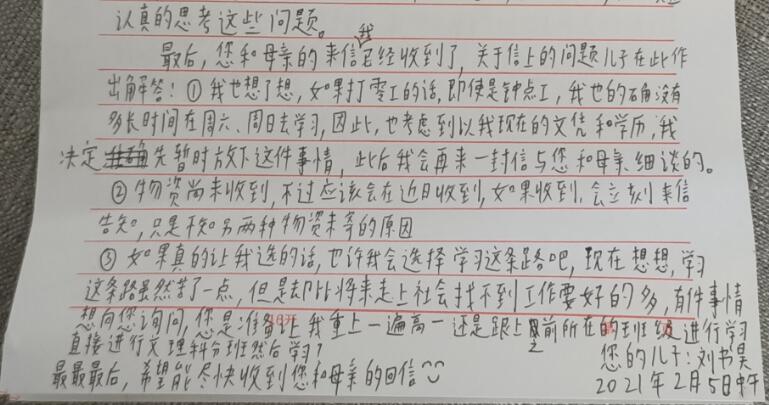 认真的思考这些问题。
最后，您和母亲的来信我已经收到了，关于信上的问题儿子在此作
出解答！①我也想了想，如果打零工的话，即使是钟点工，我也的确没有
多长时间在周六、周日去学习，因此，也考虑到以我现在的文凭和学历，我
决定先暂时放下这件事情，此后我会再来一封信与您和母亲细谈的。
②物资尚未收到，不过应该会在近日收到，如果收到，会立刻来信
告知，只是不知另两种物资未寄的原因
③如果真的让我选的话，也许我会选择学习这条路吧，现在想想，学习
这条路虽然苦了一点，但是却比将来走上社会找不到工作要好的多，有件事情
想向您询问，您是准备让我重上一遍高一还是跟上之前所在的班级进行学习
直接进行文理科分班然后学习？
您的儿子：刘书昊
最最最后，希望能尽快收到您和母亲的回信
2021年2月5日中午